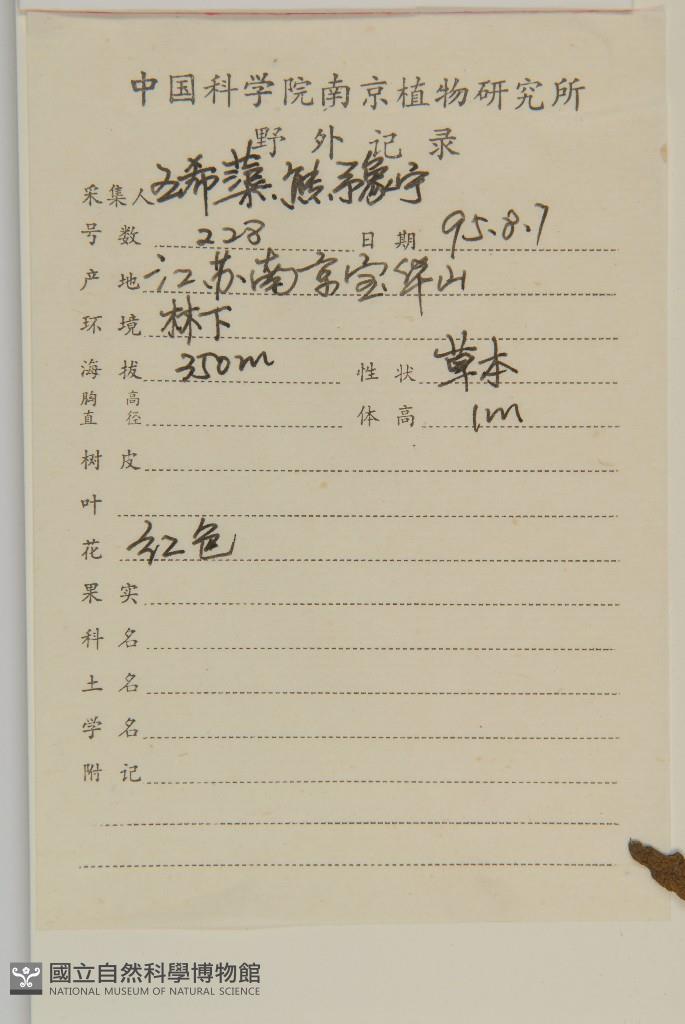 中国科学院南京植物研究所
野外记录
采集人 王希蕖、熊豫宁
号数 228 日期 95.8.7
产地 江苏南京宝华山
环境 林下
海拔 350m 性状 草本
胸高直径 体高 1m
树皮
叶
花 红色
果实
科名
土名
学名
附记
國立自然科學博物館
NATIONAL MUSEUM OF NATURAL SCIENCE